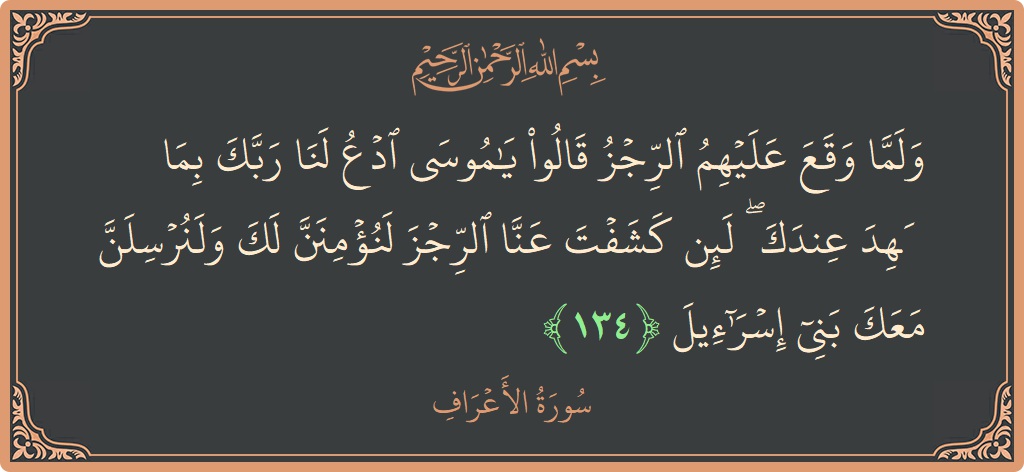 بِسْمِ اللهِ الرَّحْمٰنِ الرَّحِيْمِ
وَلَمَّا وَقَعَ عَلَيْهِمُ ٱلرِّجْزُ قَالُوا۟ يَـٰمُوسَى ٱدْعُ لَنَا رَبَّكَ بِمَا
ـَهِدَ عِندَكَ ۖ لَئِن كَشَفْتَ عَنَّا ٱلرِّجْزَ لَنُؤْمِنَنَّ لَكَ وَلَنُرْسِلَنَّ
مَعَكَ بَنِىٓ إِسْرَٰٓءِيلَ ﴿١٣٤﴾
سُورَةُ الأَعْرَافِ